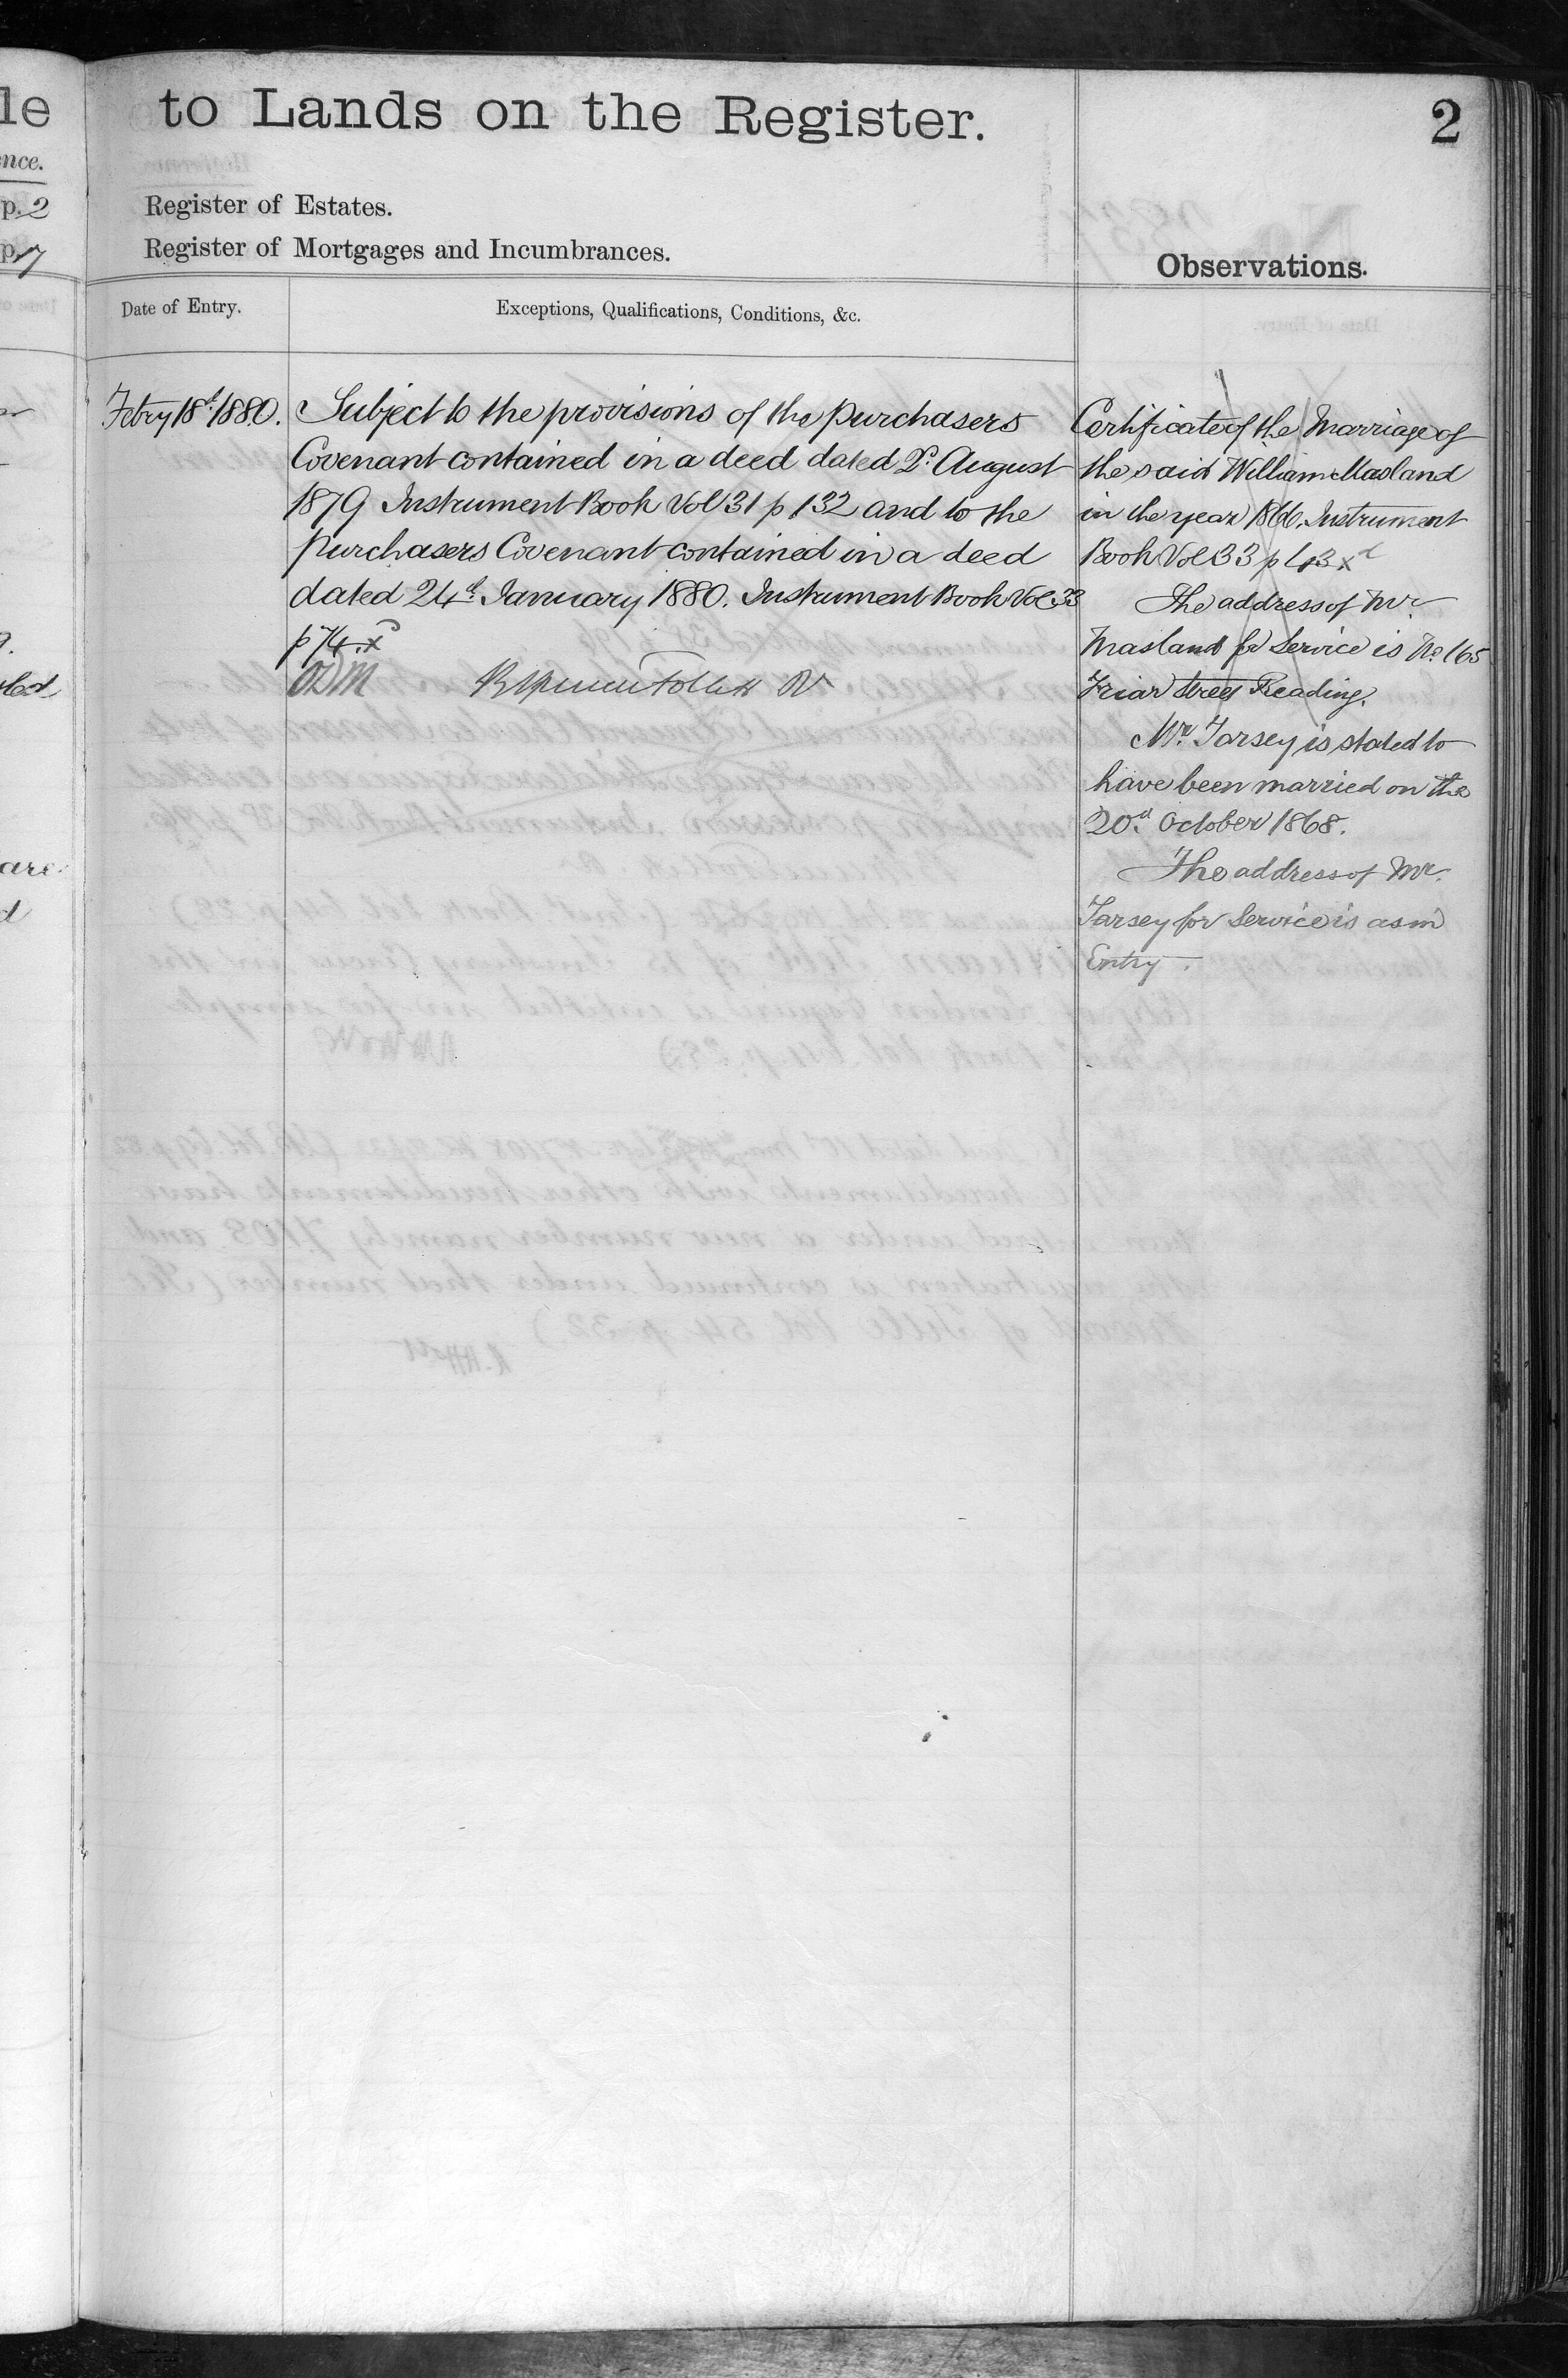 le
to Lands on the Register.
2
nce.
p. 2
Register of Estates.
p. 17
Register of Mortgages and Incumbrances.
Observations.
Date of Entry.
Exceptions, Qualifications, Conditions, &c.
Febry 18th 1880.
Subject to the provisions of the purchasers
Covenant contained in a deed dated 2d. August
1879 Instrument Book Vol 31 p 132 and to the
purchasers Covenant contained in a deed
dated 24th January 1880. Instrument Book Vol 33
p 74. x
ODM
Certificate of the Marriage of
the said William Masland
in the year 1866. Instrument
Book Vol 33 p 43 x
The address of Mr
Masland for Service is No. 165
Friar Street Reading.
Mr. Tarsey is stated to
have been married on the
20th October 1868.
The address of Mr.
Tarsey for Service is as in
Entry.
are
d